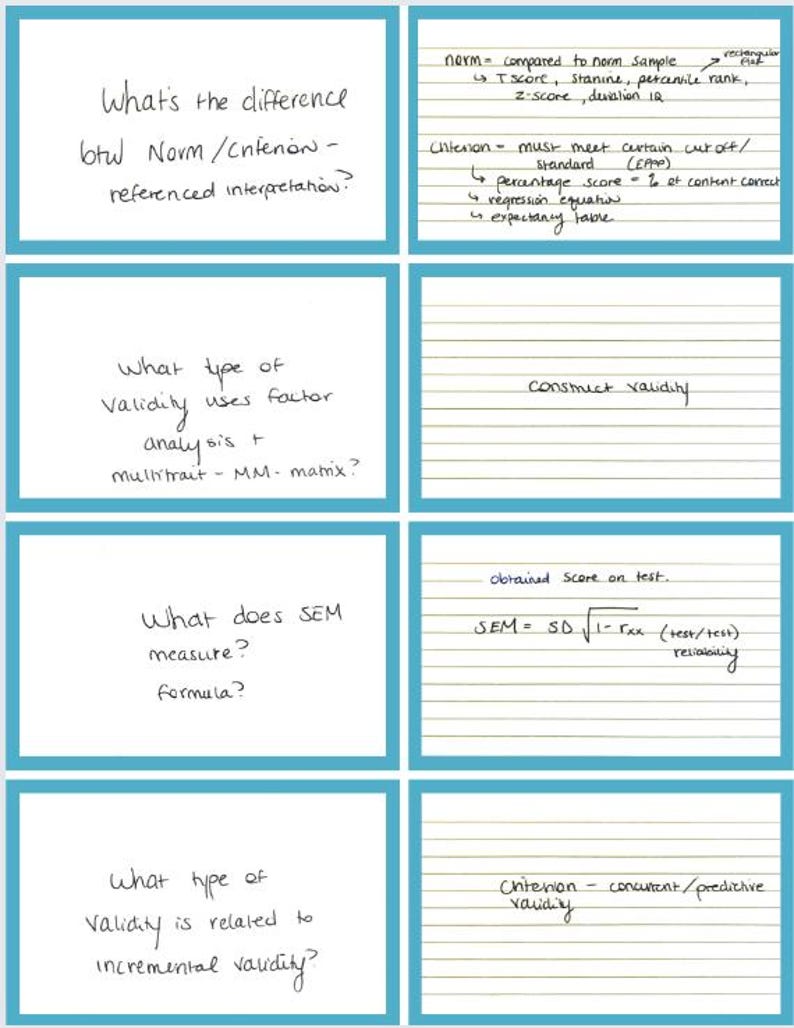 What's the difference
btw Norm/Criterion -
referenced interpretation?
norm = compared to norm sample ↗ rectangular
flat
↳ T score, stanine, percentile rank,
z-score, deviation IQ
Criterion - must meet certain cut off/
standard (EPPP)
↳ percentage score = % of content correct
↳ regression equation
↳ expectancy table
What type of
validity uses factor
analysis +
multitrait - MM - matrix?
construct validity
What does SEM
measure?
formula?
obtained score on test.
SEM = SD √1 - rxx (test/test)
reliability
What type of
validity is related to
incremental validity?
Criterion - concurrent/predictive
validity